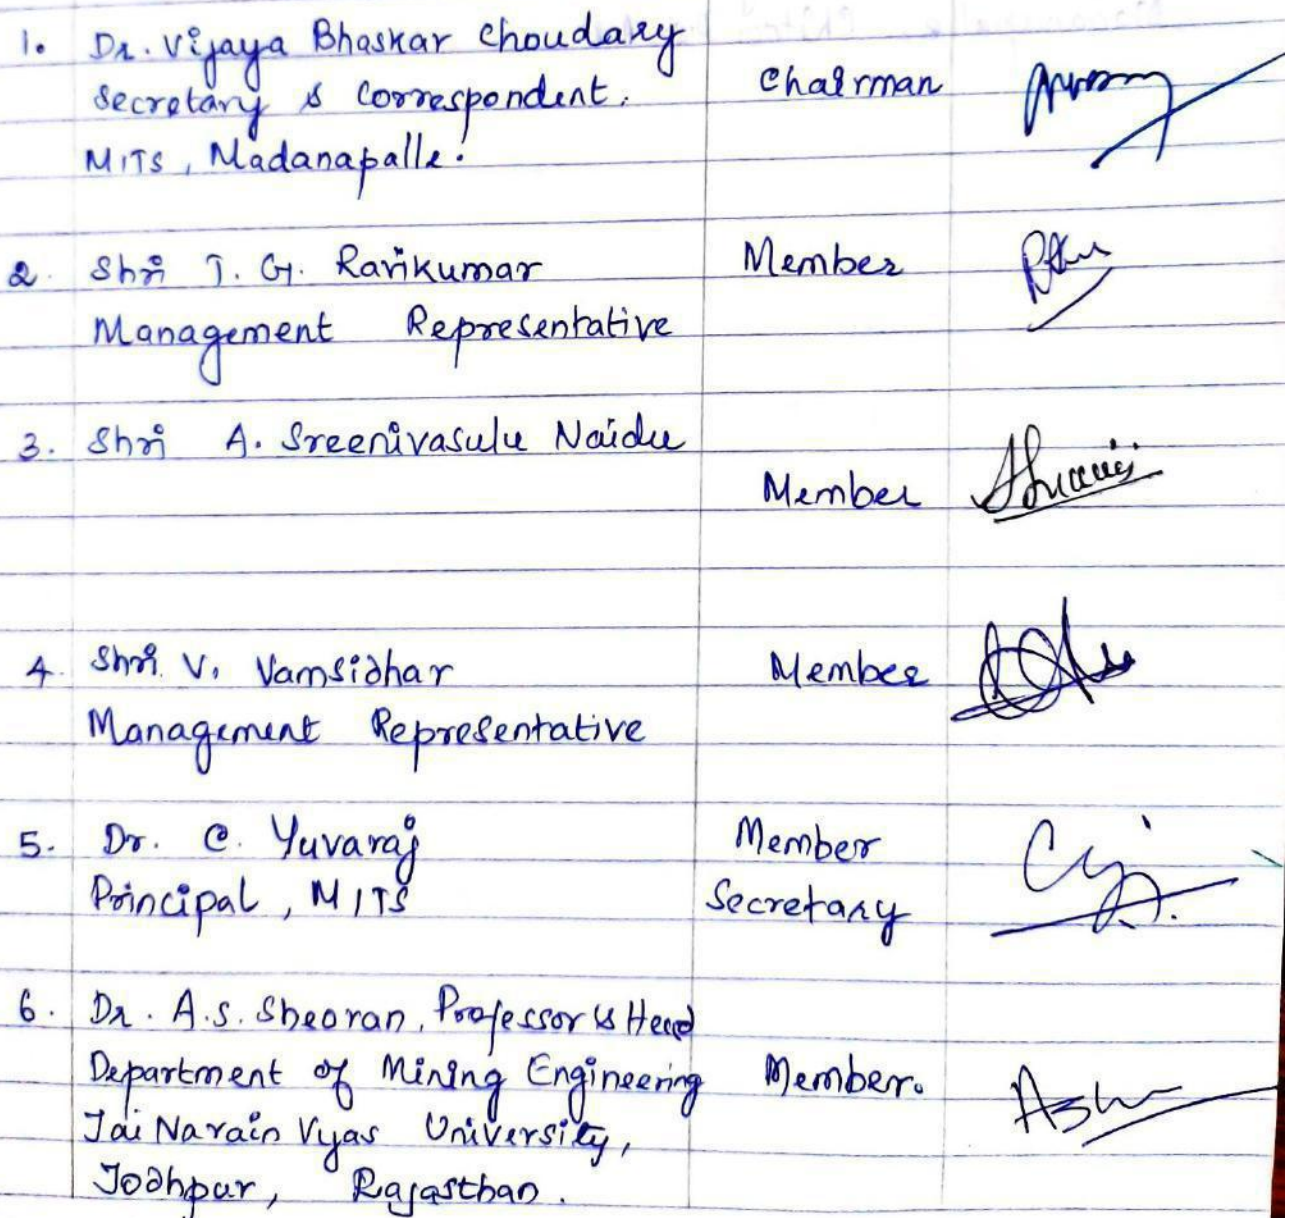 1. Dr. Vijaya Bhaskar Choudary
Secretary & Correspondent.
MITS, Madanapalle.
Chairman
2. Shri T. G. Ravikumar Member
Management Representative
3. Shri A. Sreenivasulu Naidu
Member
4. Shri. V. Vamsidhar Member
Management Representative
5. Dr. C. Yuvaraj Member
Principal, MITS Secretary
6. Dr. A.S. Sheoran, Professor & Head
Department of Mining Engineering Member.
Jai Narain Vyas University,
Jodhpur, Rajasthan.